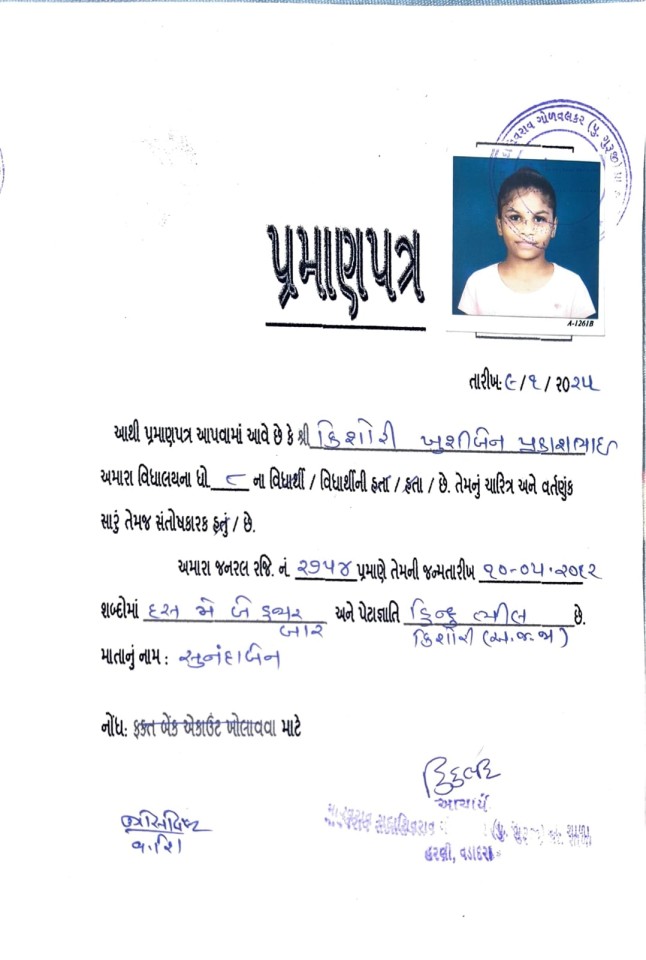 વરાવ ગોળવલકર (પુ. ગુરૂજી) પ્રા
પ્રમાણપત્ર
A-1261B
તારીખ: ૯/૧/૨૦૨૫
આથી પ્રમાણપત્ર આપવામાં આવે છે કે શ્રી કિશોરી ખુશીબેન પ્રકાશભાઇ
અમારા વિધાલયના ધો ૮ ના વિધાર્થી / વિધાર્થીની હતા / હતા / છે. તેમનું ચારિત્ર અને વર્તણુંક
સારું તેમજ સંતોષકારક હતું / છે.
અમારા જનરલ રજિ. નં. ૨૭૫૪ પ્રમાણે તેમની જન્મતારીખ ૧૦-૦૫-૨૦૧૨
શબ્દોમાં દસ મે બે હજાર બાર અને પેટાજ્ઞાતિ હિન્દુ ભીલ છે.
કિશોરી (અ.જ.જા)
માતાનું નામ : સુનંદાબેન
નોંધ: ફક્ત બેંક એકાઉંટ ખોલાવવા માટે
આચાર્ય
માધવરાવ સદાશિવરાવ (પુ. ગુરૂજી) પ્રા. શાળા
વ.શિ
હરણી, વડોદરા